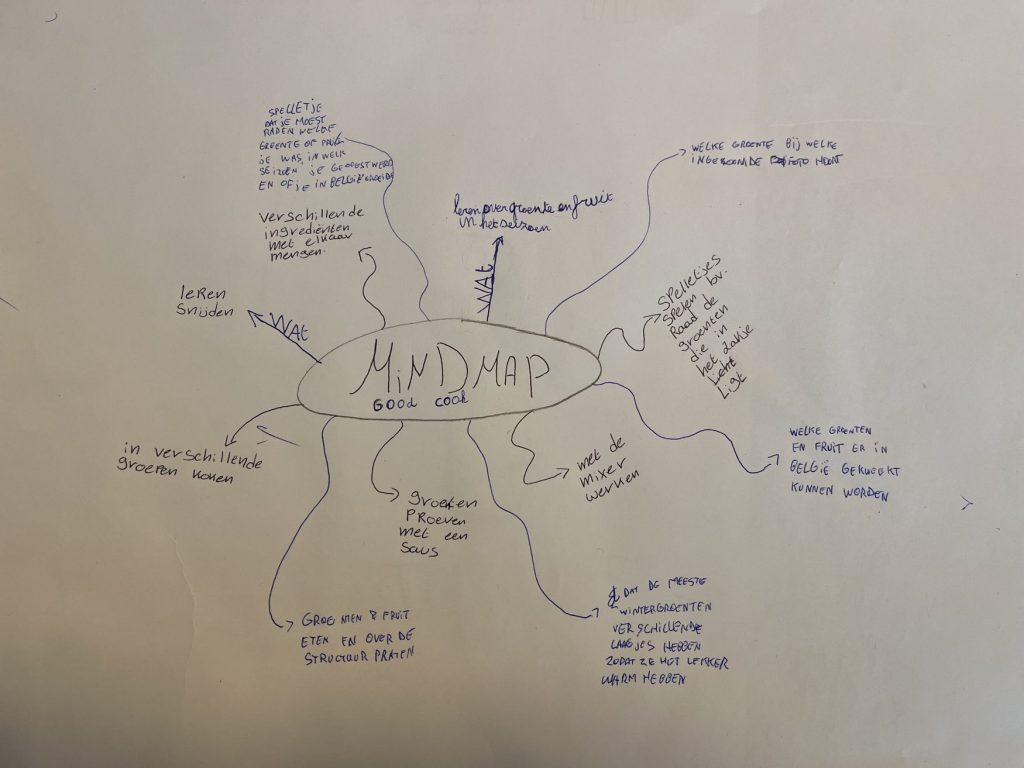 SPELLETJE
DAT JE MOEST
RADEN WELKE
GROENTE OF FRUIT
JE WAS, IN WELK
SEIZOEN JE GEOOGST WERD
EN OF JE IN BELGIË GROEIDE
WELKE GROENTE BIJ WELKE
INGEZOOMDE FOTO HOORT
leren over groente en fruit
in het seizoen
WAt
verschillende
ingrediënten
met elkaar
mengen.
leren
snijden
WAt
Spelletjes
spelen bv.
Raad de
groenten
die in
het zakje
ligt
MiNDMAP
GOOd cook
in verschillende
groepen koken
groenten
PRoeven
met een
saus
met de
mixer
werken
WELKE GROENTEN
EN FRUIT ER IN
BELGIË GEKWEEKT
KUNNEN WORDEN
GROENTEN & FRUIT
ETEN EN OVER DE
STRUCTUUR PRATEN
DAT DE MEESTE
WINTERGROENTEN
VERSCHILLENDE
LAAGJES HEBBEN
ZODAT ZE HET LEKKER
WARM HEBBEN